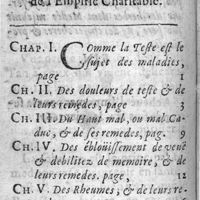 de l'Empiric Charitable.
CHAP. I. Comme la Teste est le
sujet des maladies,
page 1
CH. II. Des douleurs de teste & de
leurs remedes, page 3
CH. III. Du Haut mal, ou mal Ca-
duc, & de ses remedes, pag. 9
CH. IV. Des éblouïssement de veuë
& debilitez de memoire, & de
leurs remedes. page, 12
CH. V. Des Rheumes, & de leurs re-